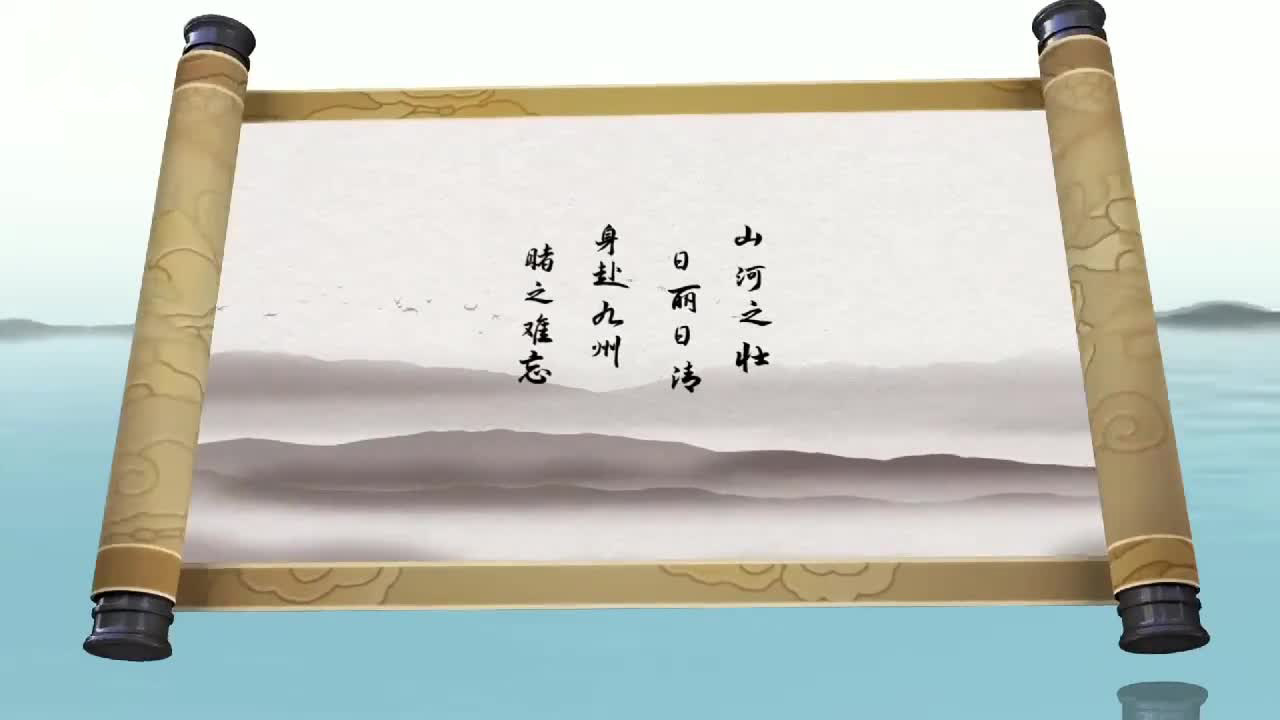 山河之壮
日丽日清
身赴九州
睹之难忘